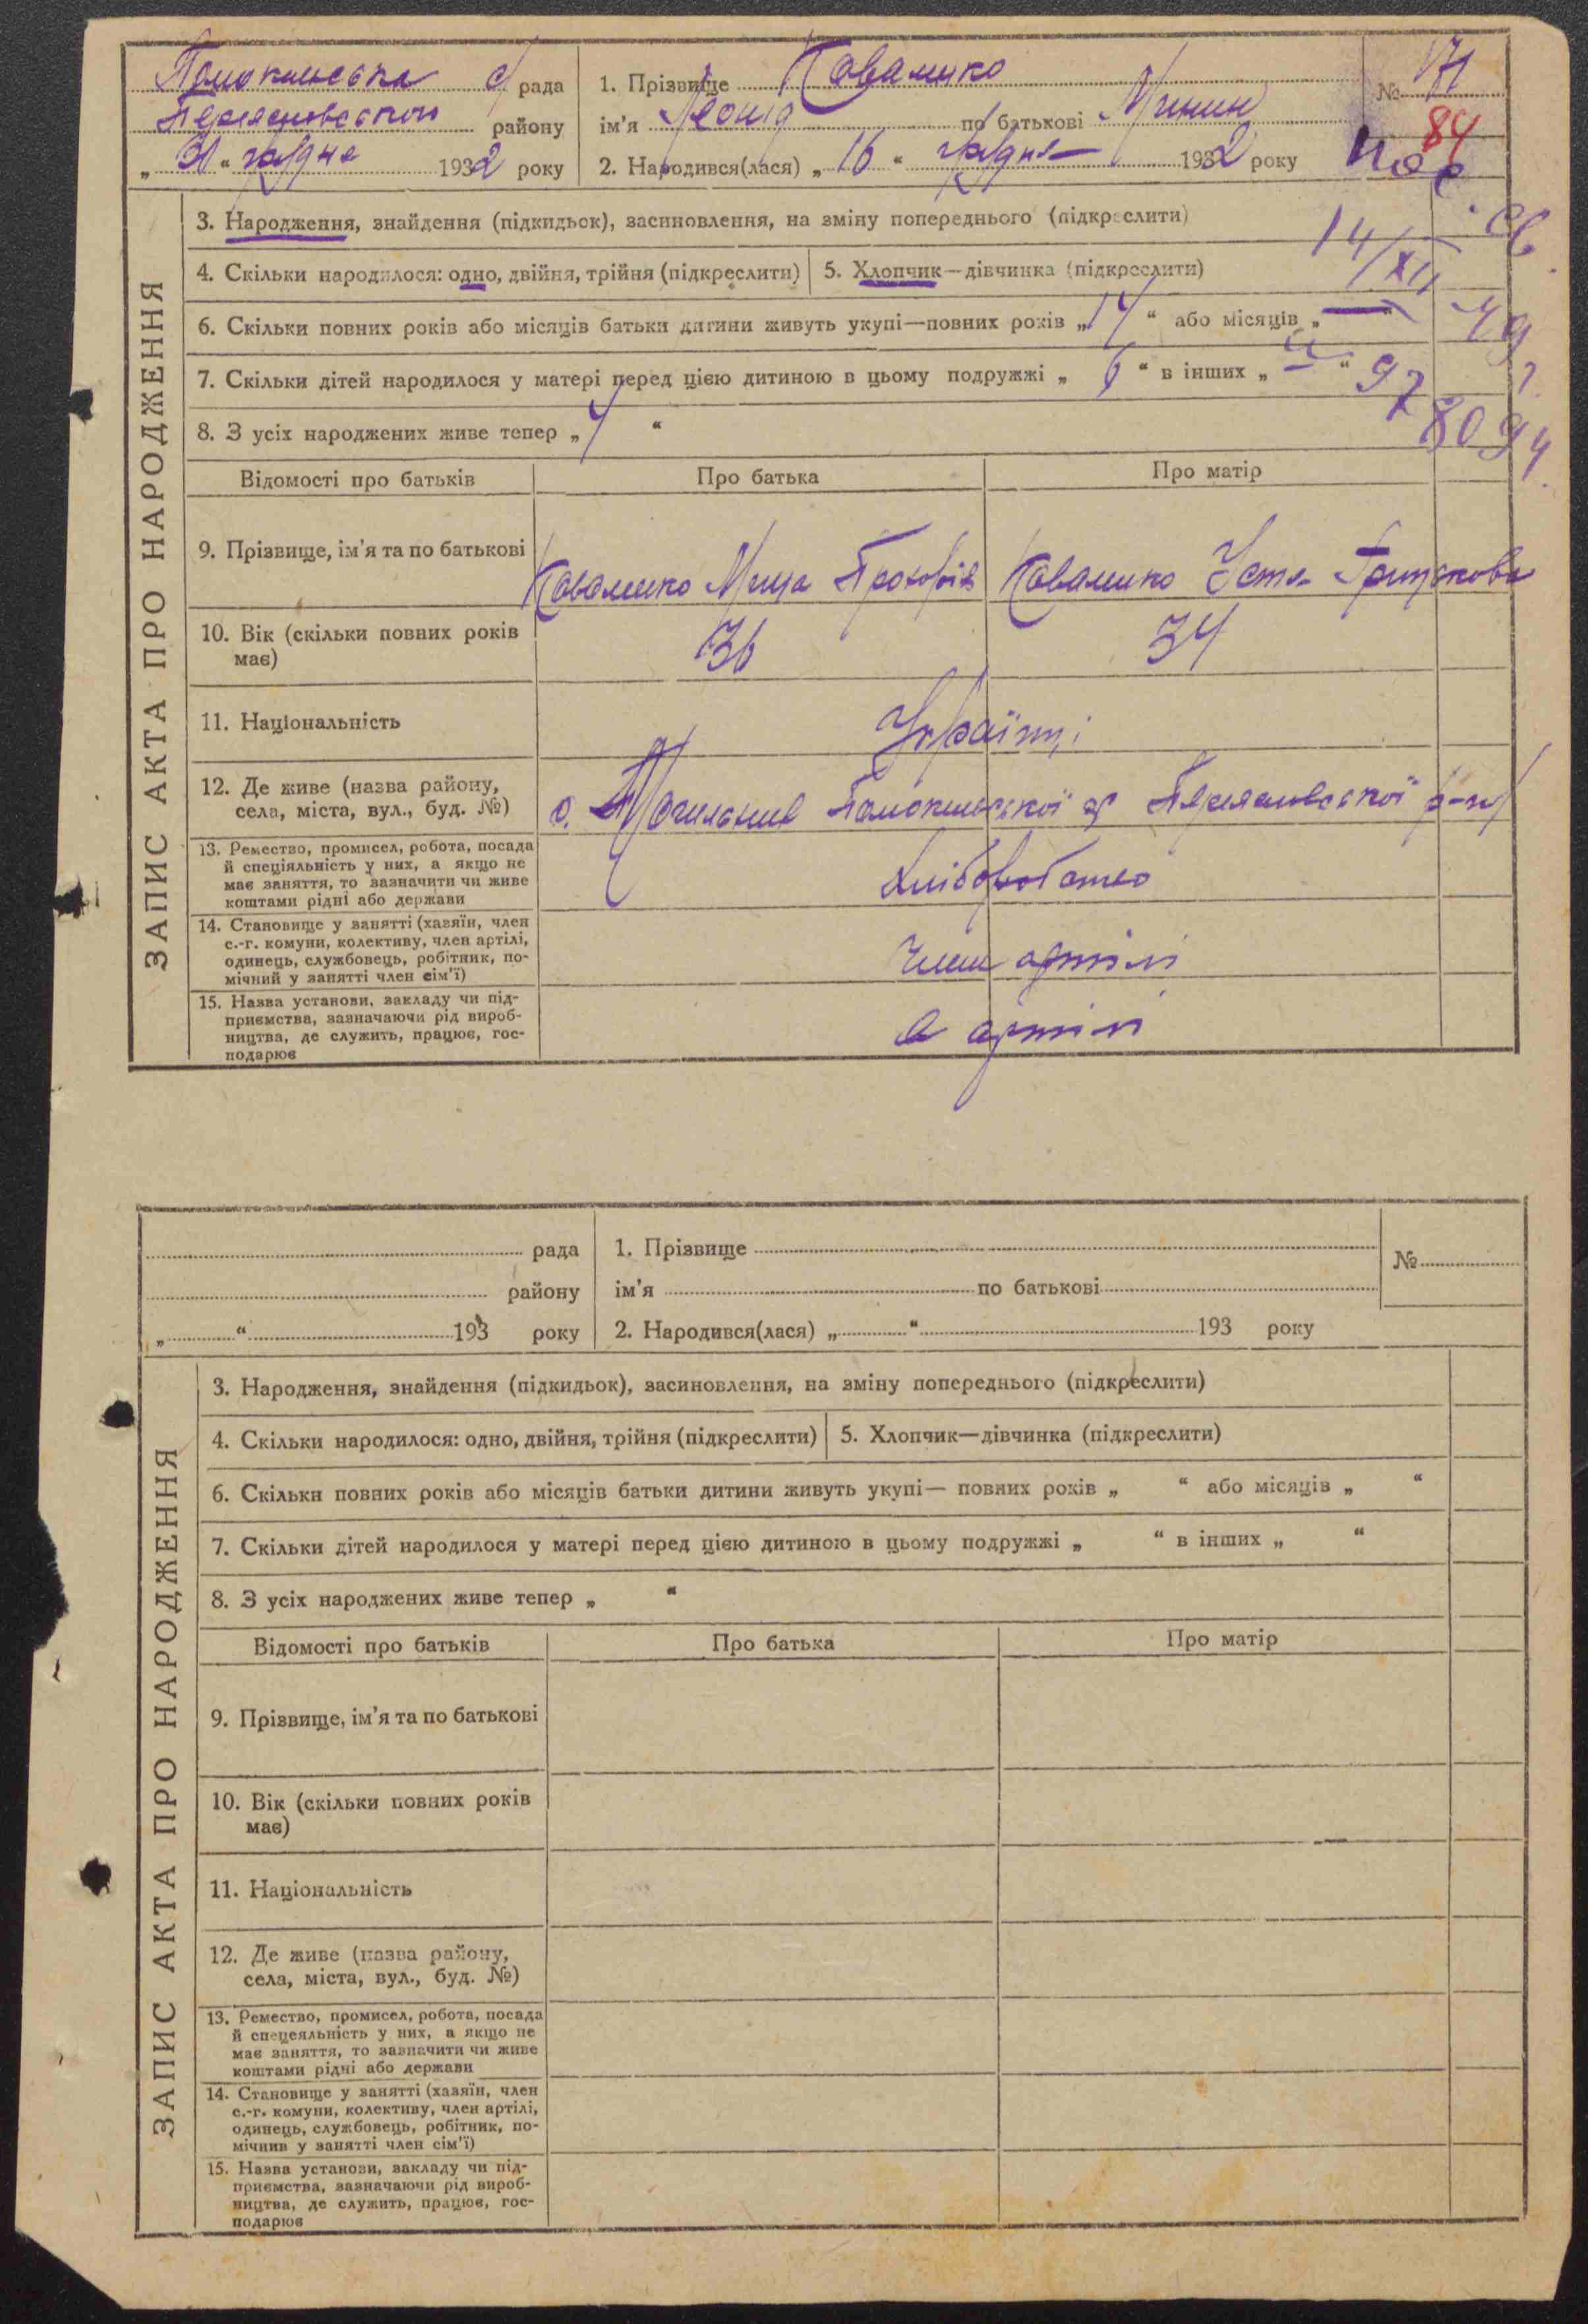 Помоклиська с/рада
Переяславського району
„31“ грудня 1932 року
1. Прізвище Коваленко
ім'я Леонід по батькові Минин
2. Народився(лася) „16“ грудня 1932 року
№ 71
84
ЗАПИС АКТА ПРО НАРОДЖЕННЯ
3. Народження, знайдення (підкидьок), засиновлення, на зміну попереднього (підкреслити)
14/XII
4. Скільки народилося: одно, двійня, трійня (підкреслити)
5. Хлопчик—дівчинка (підкреслити)
49
6. Скільки повних років або місяців батьки дитини живуть укупі—повних років „14“ або місяців „—“
7. Скільки дітей народилося у матері перед цією дитиною в цьому подружжі „6“ в інших „—“
8. З усіх народжених живе тепер „4“
Відомості про батьків
Про батька
Про матір
9. Прізвище, ім'я та по батькові
Коваленко Мина Прокопів
Коваленко Устя Грицькова
10. Вік (скільки повних років
має)
36
34
11. Національність
Українці
12. Де живе (назва району,
села, міста, вул., буд. №)
с. Помоклиської с/р Переяславської р-ну
13. Ремество, промисел, робота, посада
й спеціяльність у них, а якщо не
має заняття, то зазначити чи живе
коштами рідні або держави
Хліборобство
14. Становище у занятті (хазяїн, член
с.-г. комуни, колективу, член артілі,
одинець, службовець, робітник, по-
мічний у занятті член сім'ї)
Член артілі
15. Назва установи, закладу чи під-
приємства, зазначаючи рід вироб-
ництва, де служить, працює, гос-
подарює
в артілі
рада
району
„ “ 193 року
1. Прізвище
ім'я по батькові
2. Народився(лася) „ “ 193 року
№
ЗАПИС АКТА ПРО НАРОДЖЕННЯ
3. Народження, знайдення (підкидьок), засиновлення, на зміну попереднього (підкреслити)
4. Скільки народилося: одно, двійня, трійня (підкреслити)
5. Хлопчик—дівчинка (підкреслити)
6. Скільки повних років або місяців батьки дитини живуть укупі— повних років „ “ або місяців „ “
7. Скільки дітей народилося у матері перед цією дитиною в цьому подружжі „ “ в інших „ “
8. З усіх народжених живе тепер „ “
Відомості про батьків
Про батька
Про матір
9. Прізвище, ім'я та по батькові
10. Вік (скільки повних років
має)
11. Національність
12. Де живе (назва району,
села, міста, вул., буд. №)
13. Ремество, промисел, робота, посада
й спецеяльність у них, а якщо не
має заняття, то зазначити чи живе
коштами рідні або держави
14. Становище у занятті (хазяїн, член
с.-г. комуни, колективу, член артілі,
одинець, службовець, робітник, по-
мічнив у занятті член сім'ї)
15. Назва установи, закладу чи під-
приємства, зазначаючи рід вироб-
ництва, де служить, працює, гос-
подарює